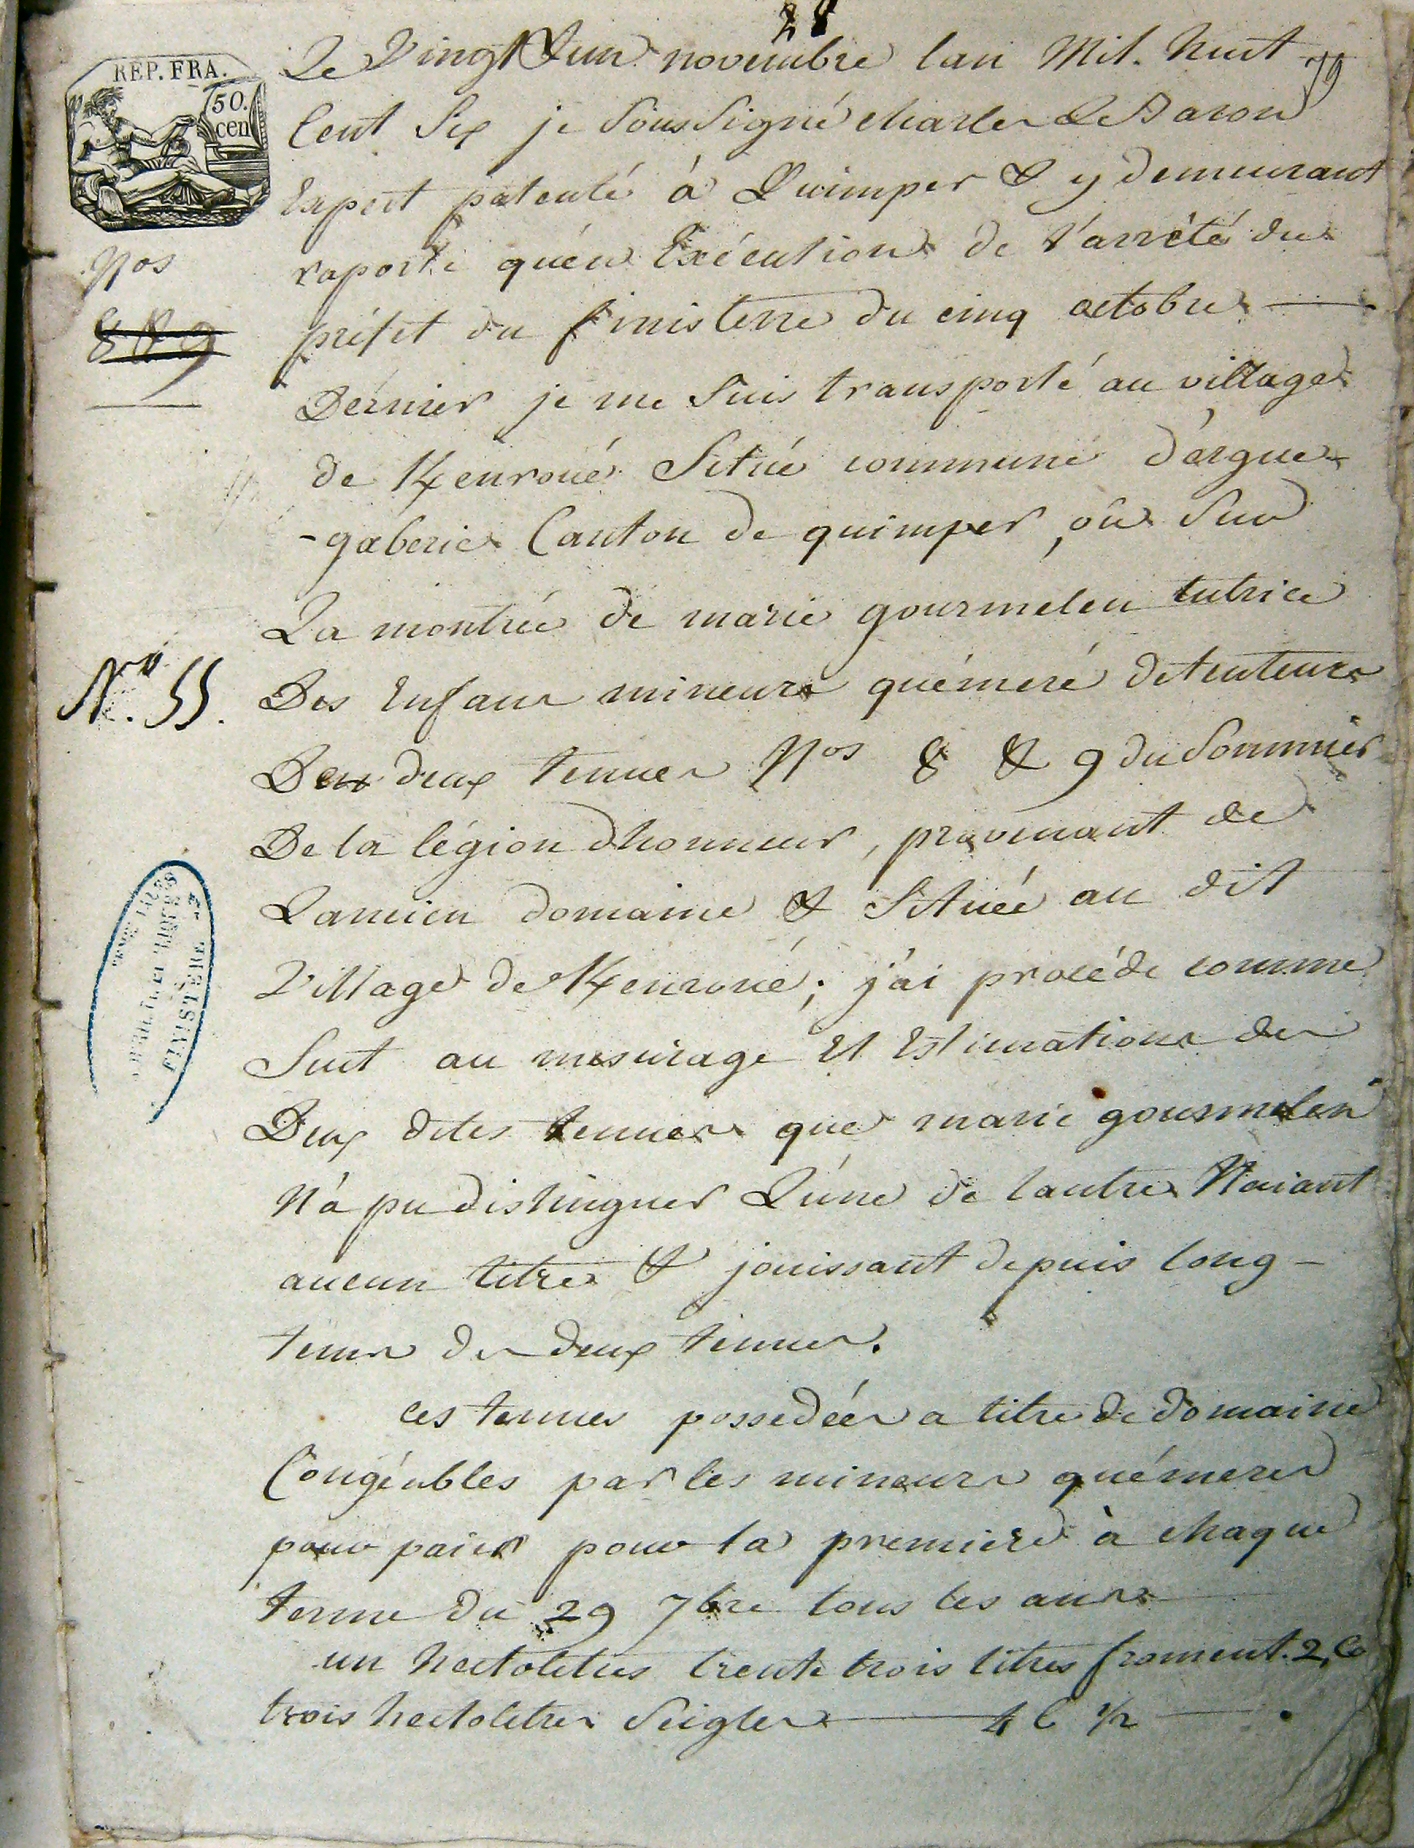 28
79
REP. FRA.
50.
cen
Le Vingt & un novembre lan Mil. huit
Cent Six je Soussigné charles Le Baron
Expert patenté à Quimper & y demeurant
raporte qu'en Exécution de l'arrêté du
préfet du finisterre du cinq octobre
Dérnier je me Suis transporté au village
de Kenroué Situé commune d'érgue-
-gaberic Canton de quimper, où Sur
La montrée de marie gourmelen tutrice
Des Enfans mineurs quéméré detenteurs
Des deux tenues Nos 8 & 9 du Sommier
De la légion dhonneur, provenant de
Lancien domaine & Situéé au dit
Village de Kenroué; j'ai procédé comme
Suit au mesurage Et Estimations des
Deux dites tenues que marie gourmelen
N'a pu distinguer L'une de lautre Naiant
aucun titre & jouissant depuis long-
tems des deux tenues.
ces tenues possedées a titre de domaine
Congéables par les mineurs quémeré
pour paier pour la premiere à chaque
terme du 29 7bre tous les ans
un hectolitres trente trois litres froment. 2, Co
trois hectolitres Seigle 4 C 1/2
Nos
8 & 9
No. 55.
FINISTERE